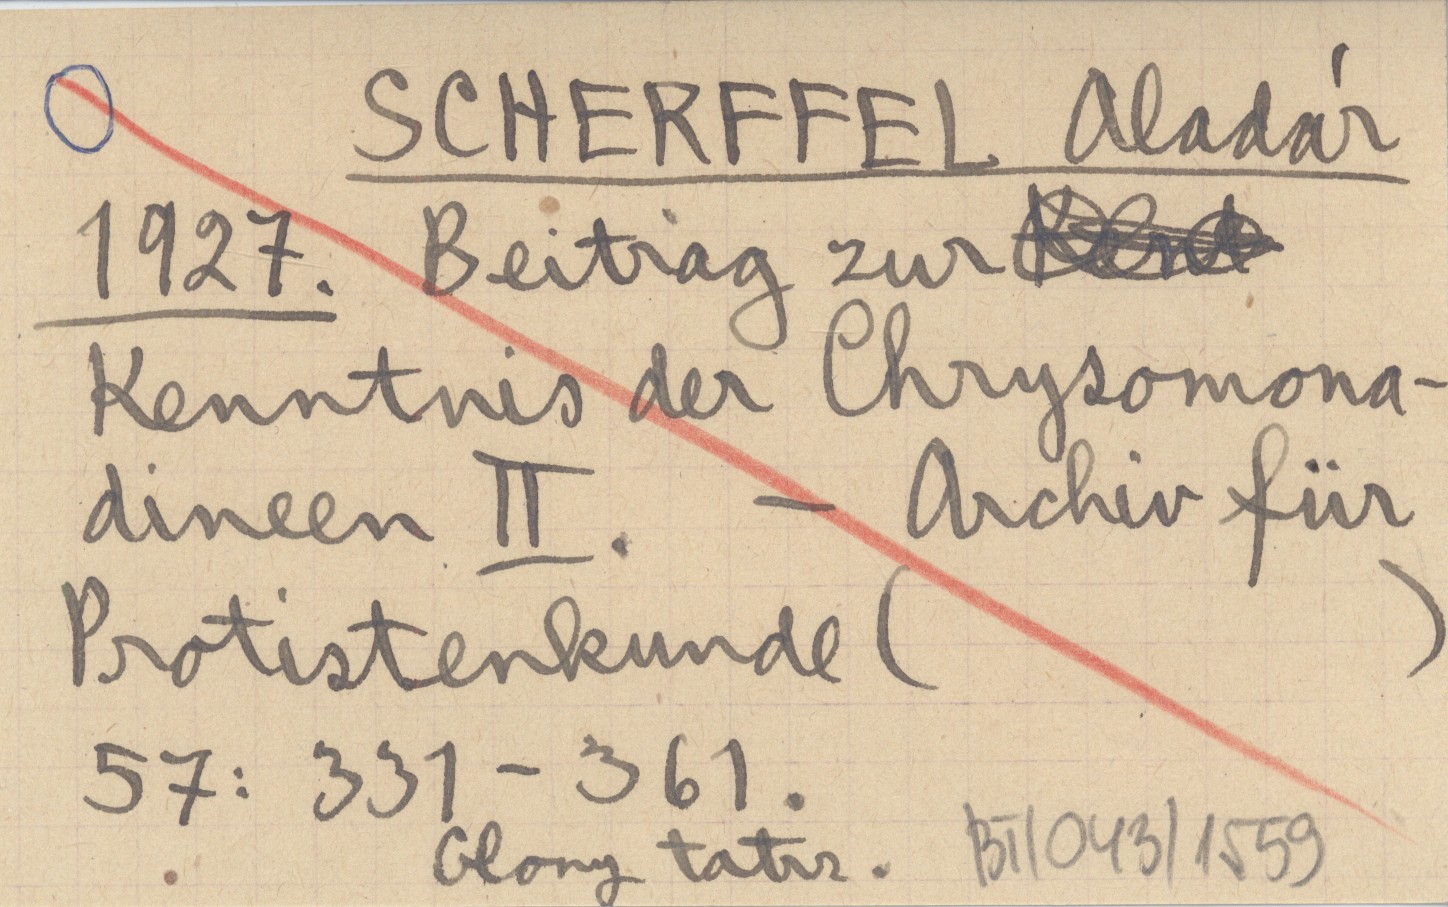 SCHERFFEL Aladár
1927. Beitrag zur
Kenntnis der Chrysomona-
dineen II. - Archiv für
Protistenkunde ( )
57: 331 - 361.
Glony tatr.
BI/043/1559